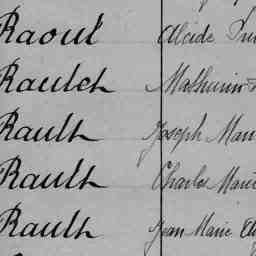 Raoul Alcide
Raulet Mathurin
Rault Joseph
Rault Charles
Rault Jean Marie